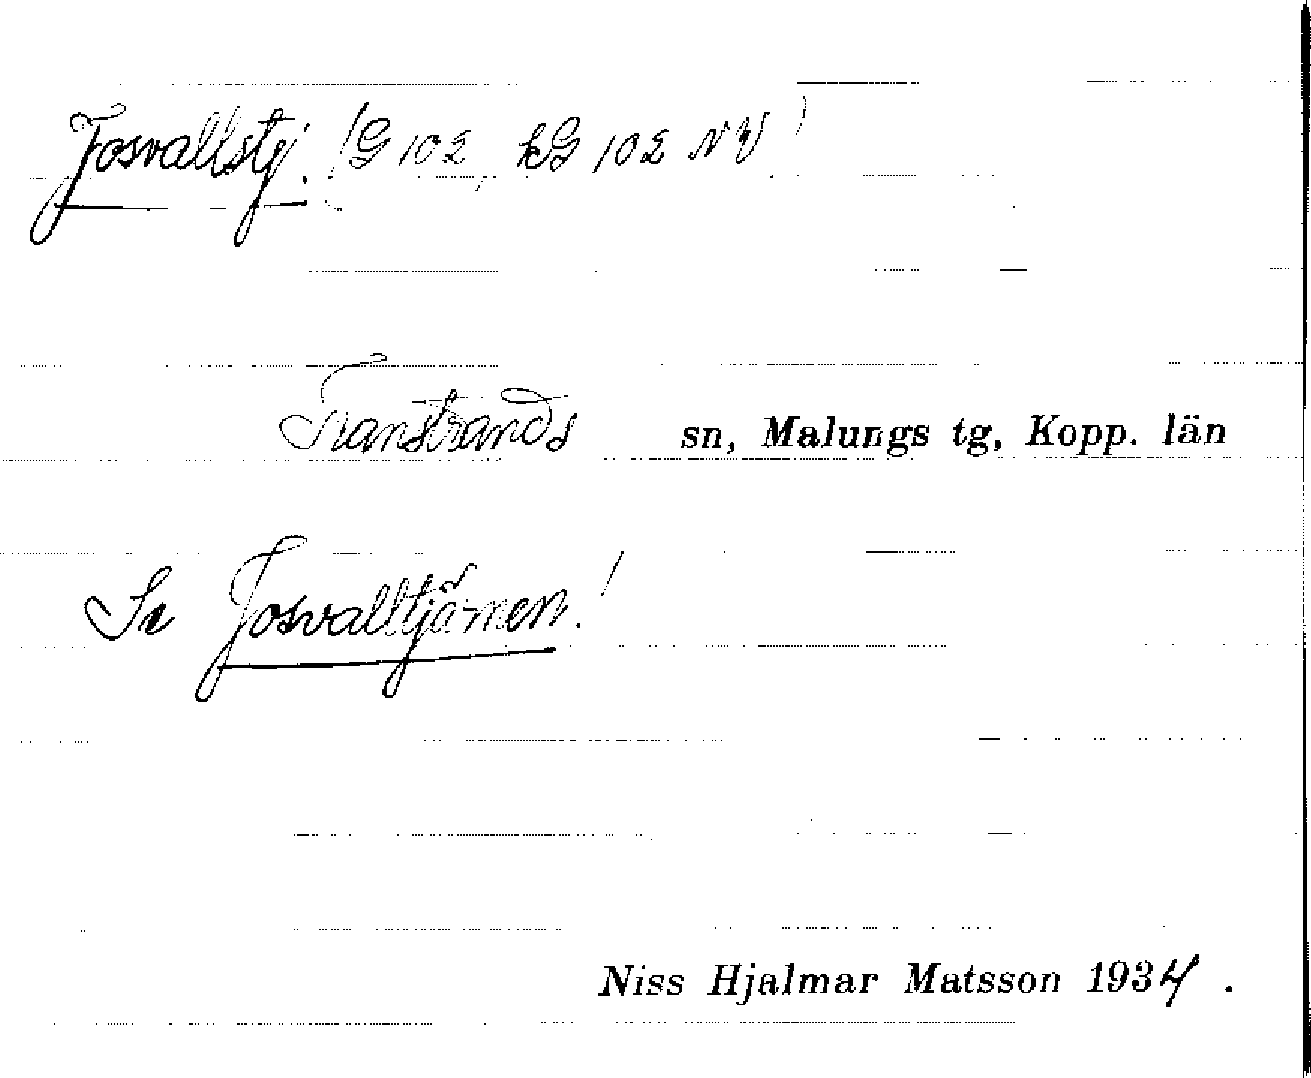 Josvallstj. (G 102, kG 102 NV)
Transtrands sn, Malungs tg, Kopp. län
Se Josvalltjärnen!
Niss Hjalmar Matsson 1934.